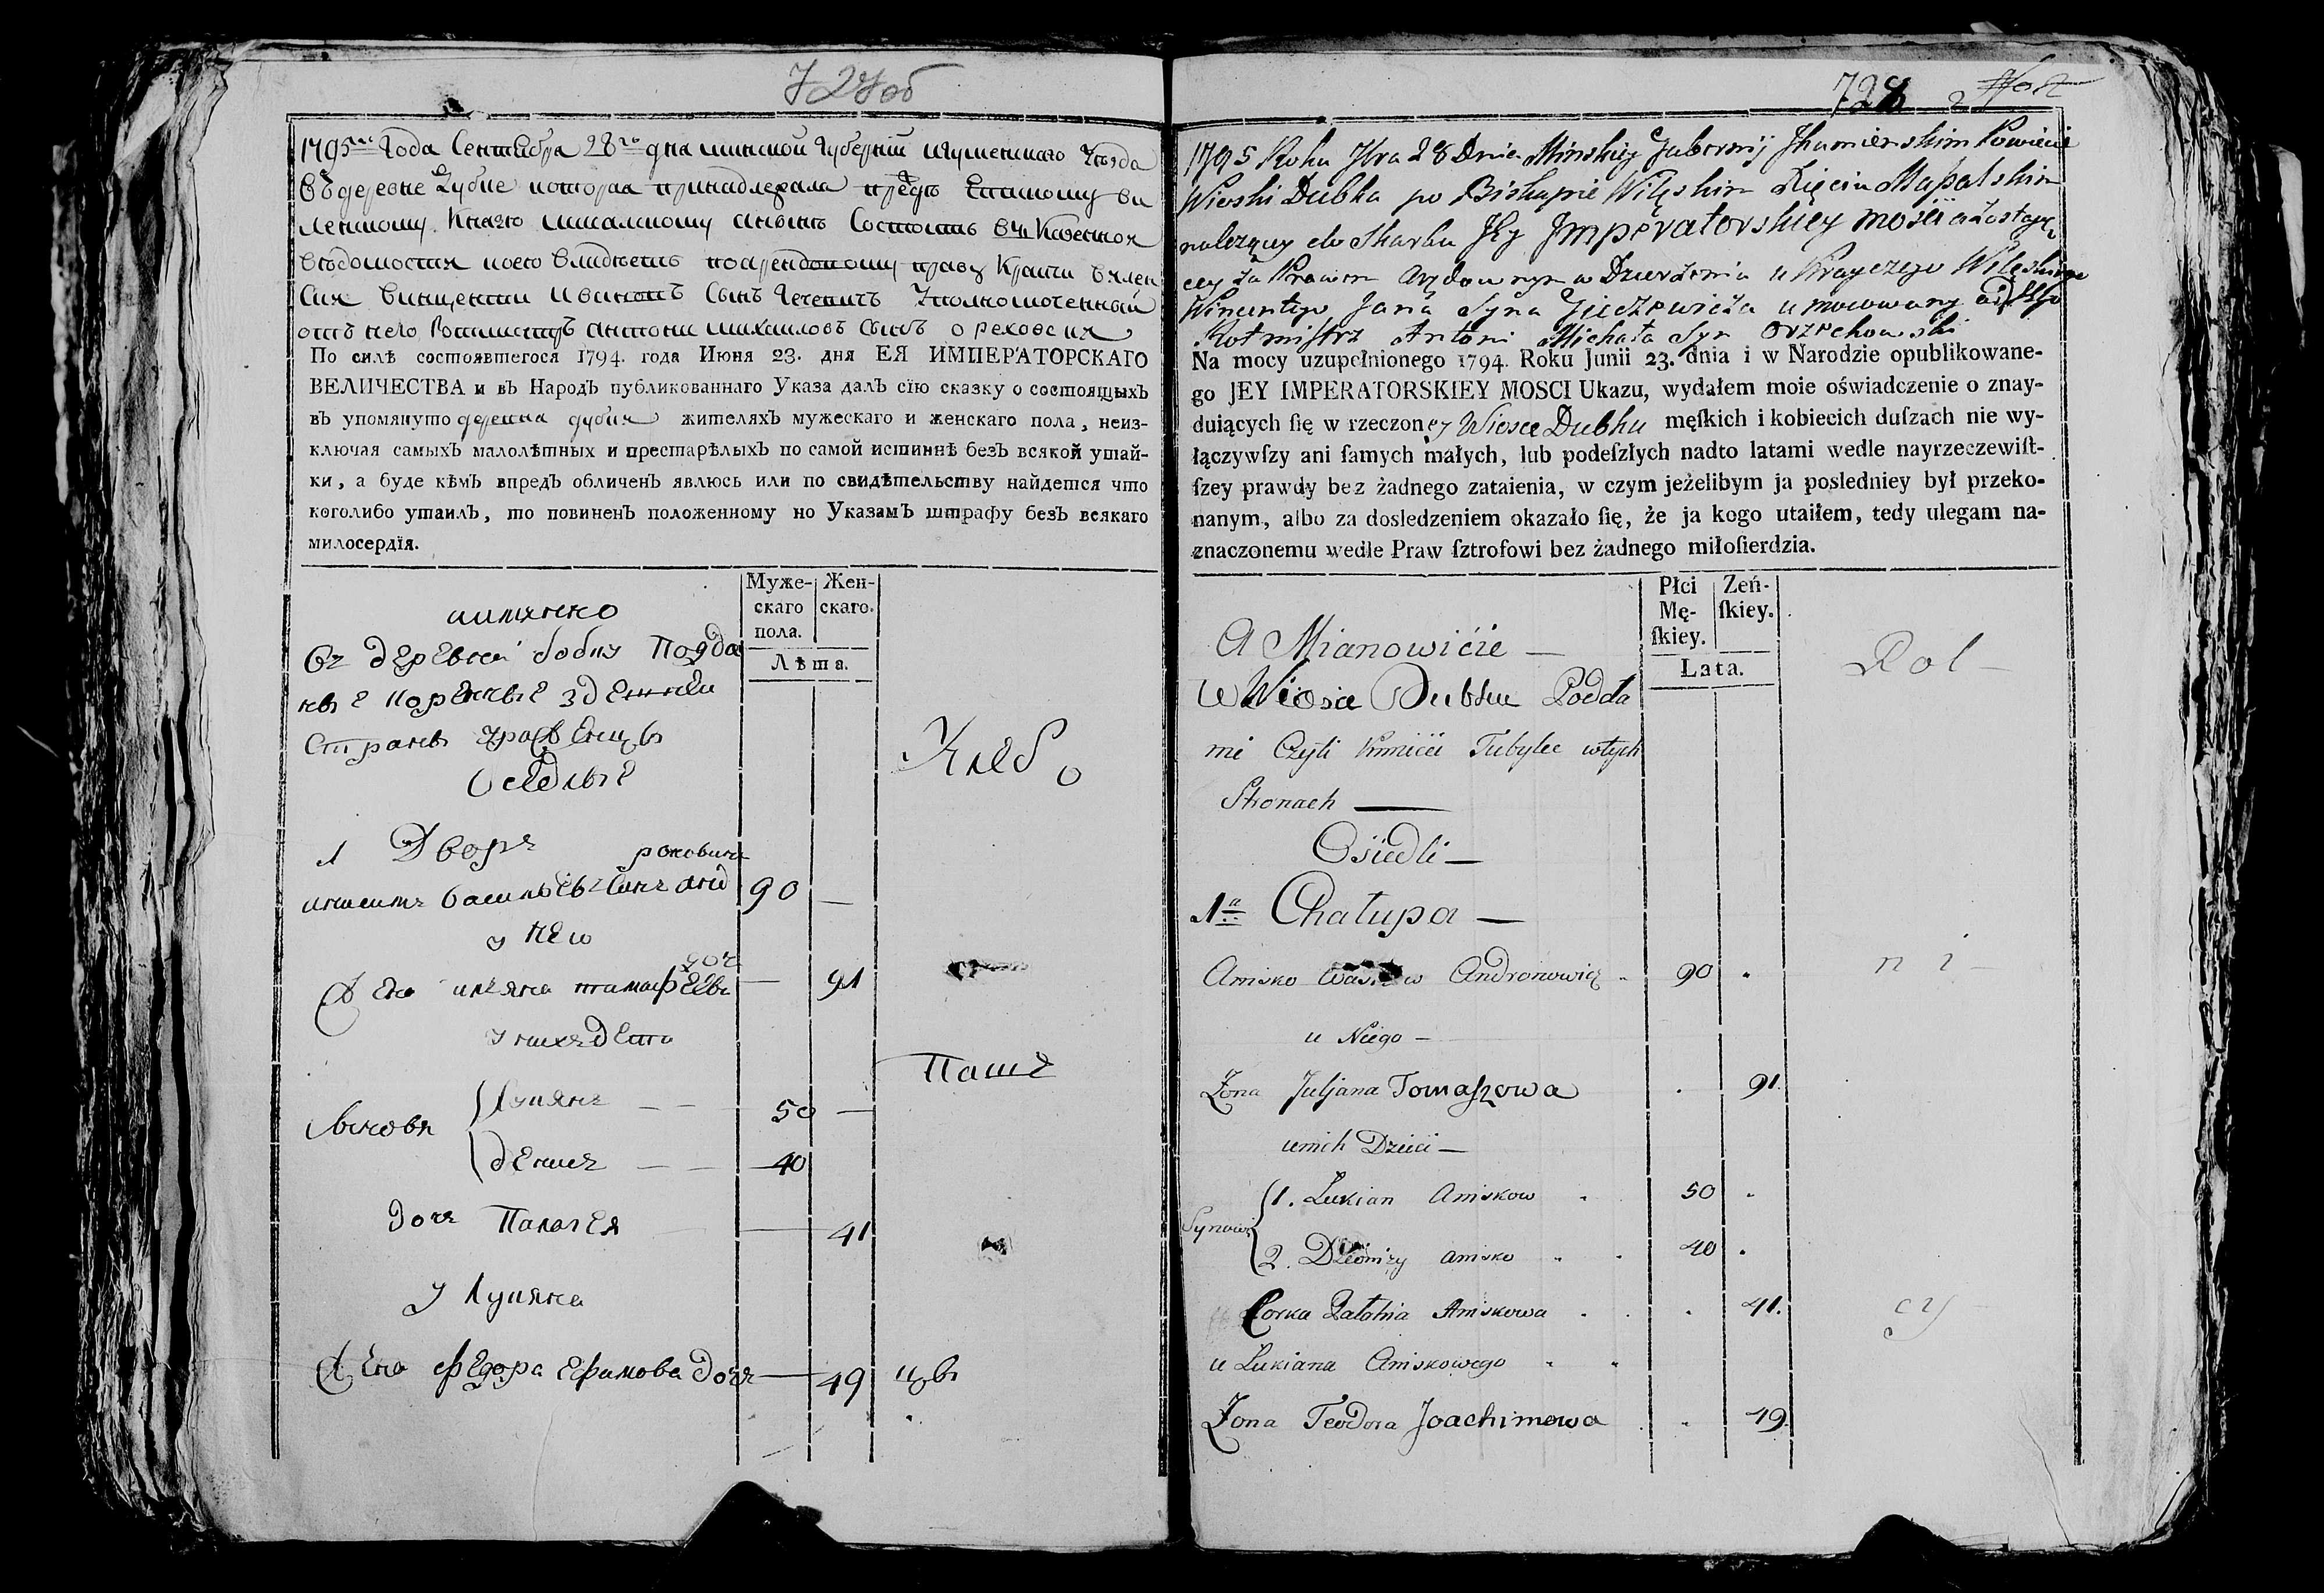 727об
1795го Года Сентебра 28го дна минской губернии игуменского уезда
въ деревне Дубке котораа принадлежала предъ Епискому ви
ленскому Князю Масалскому а нынѣ состоитъ въ Казенном
ведомостия коего владѣетъ по арендовному праву Крайчи вилен
ския Винценти Ивановъ сынъ Гечевичъ Уполномоченный
отъ него Ротмистръ Антони михаиловъ сынъ Ореховския
По силѣ состоявшегося 1794. года Июня 23. дня ЕЯ ИМПЕРАТОРСКАГО
ВЕЛИЧЕСТВА и въ Народъ публикованнаго Указа далъ сїю сказку о состоящыхъ
въ упомянуто деревна дубки жителяхъ мужескаго и женскаго пола, неиз-
ключая самыхъ малолѣтных и престарѣлыхъ по самой истиннѣ безъ всякой утай-
ки, а буде кѣмъ впредъ обличенъ явлюсь или по свидѣтельству найдется что
коголибо утаилъ, то повиненъ положенному но Указамъ штрафу безъ всякаго
милосердїя.
Муже-скаго пола. Жен-скаго.
Лѣта.
имянно
въ деревни дубку Подда
ные коренные зденней
Страны
Оседлые
Хлебо
1 Дворъ
Анисимъ Васильевъ Сынъ Андроновичъ 90 —
у него
Жена Ульяна тамашева доч — 91
у нихъ дети
Паше
Сыновя Лукянъ — — 50 —
Денисъ — — 40
доч Палагея — 41
у Лукяна
Жена Федора Ефимова доч — 49
цы
728
1795 Roku 7bra 28 Dnia Minskiey Gubernij Ihumienskim Powiecie
Wioski Dubka po Biskupie Wilęskim Xięciu Massalskim
nalezący do Skarbu JEy Imperatorskiey mości a zostaję
cey za Prawem Arędownym w Dzierżeniu u Krayczego Wilęskiego
Wincentego Jana Syna Gieczewicza umocowany od JEgo
Rotmistrz Antoni Michała Syn Orzechowski
Na mocy uzupełnionego 1794. Roku Junii 23. dnia i w Narodzie opublikowane-
go JEY IMPERATORSKIEY MOSCI Ukazu, wydałem moie oświadczenie o znay-
duiących ſię w rzeczoney Wiosce Dubku męſkich i kobiecich duſzach nie wy-
łączywſzy ani ſamych małych, lub podeſzłych nadto latami wedle nayrzeczewiſt-
ſzey prawdy bez żadnego zataienia, w czym jeżelibym ja posledniey był przeko-
nanym, albo za dosledzeniem okazało ſię, że ja kogo utaiłem, tedy ulegam na-
znaczonemu wedle Praw ſztrofowi bez żadnego miłoſierdzia.
Płci Mę-ſkiey. Zeń-ſkiey.
Lata.
A Mianowićie —
W Wiosce Dubku Podda
Rol —
mi Czyli Kmicie Tubylce w tych
Stronach —
Osiedli —
1a Chałupa —
Anisko Andronowicz 90
ni —
u Niego —
Zona Juljana Tomaszowa 91.
u nich Dzieci —
Synowi 1. Łukian Aniskow 50
2. Dzionizy Anisko 40
Corka Pałohia Aniskowa 41.
cy
u Łukiana Aniskowego
Zona Teodora Joachimowa 49.